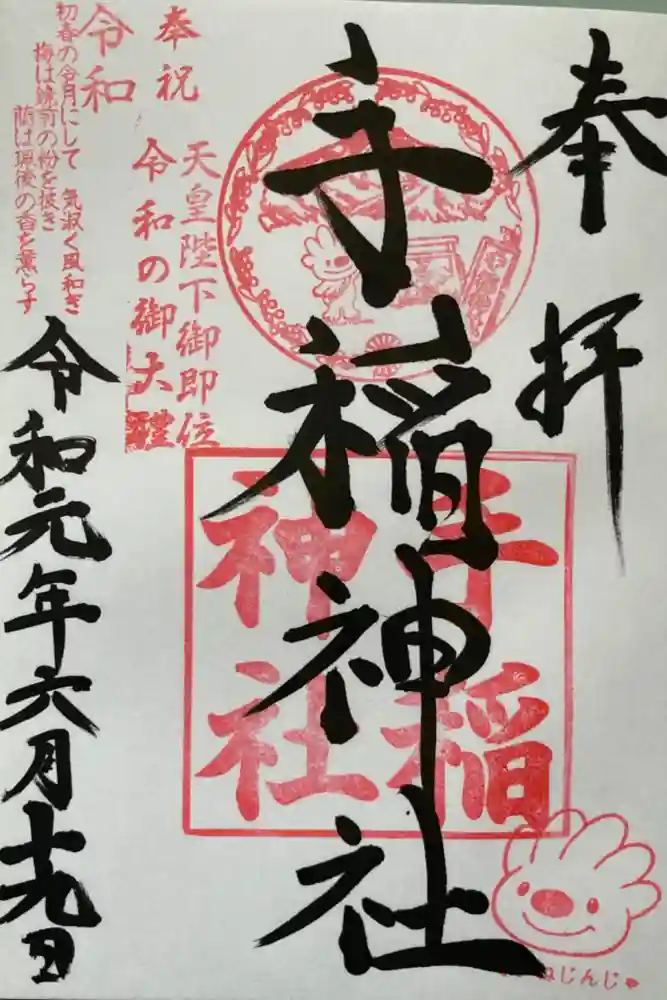 奉拝
手稲神社
手稲
神社
奉祝
天皇陛下御即位
令和の御大禮
令和
初春の令月にして 気淑く風和ぎ
梅は鏡前の粉を披き
蘭は珮後の香を薫らす
令和元年六月十九日
ねじんじゃ